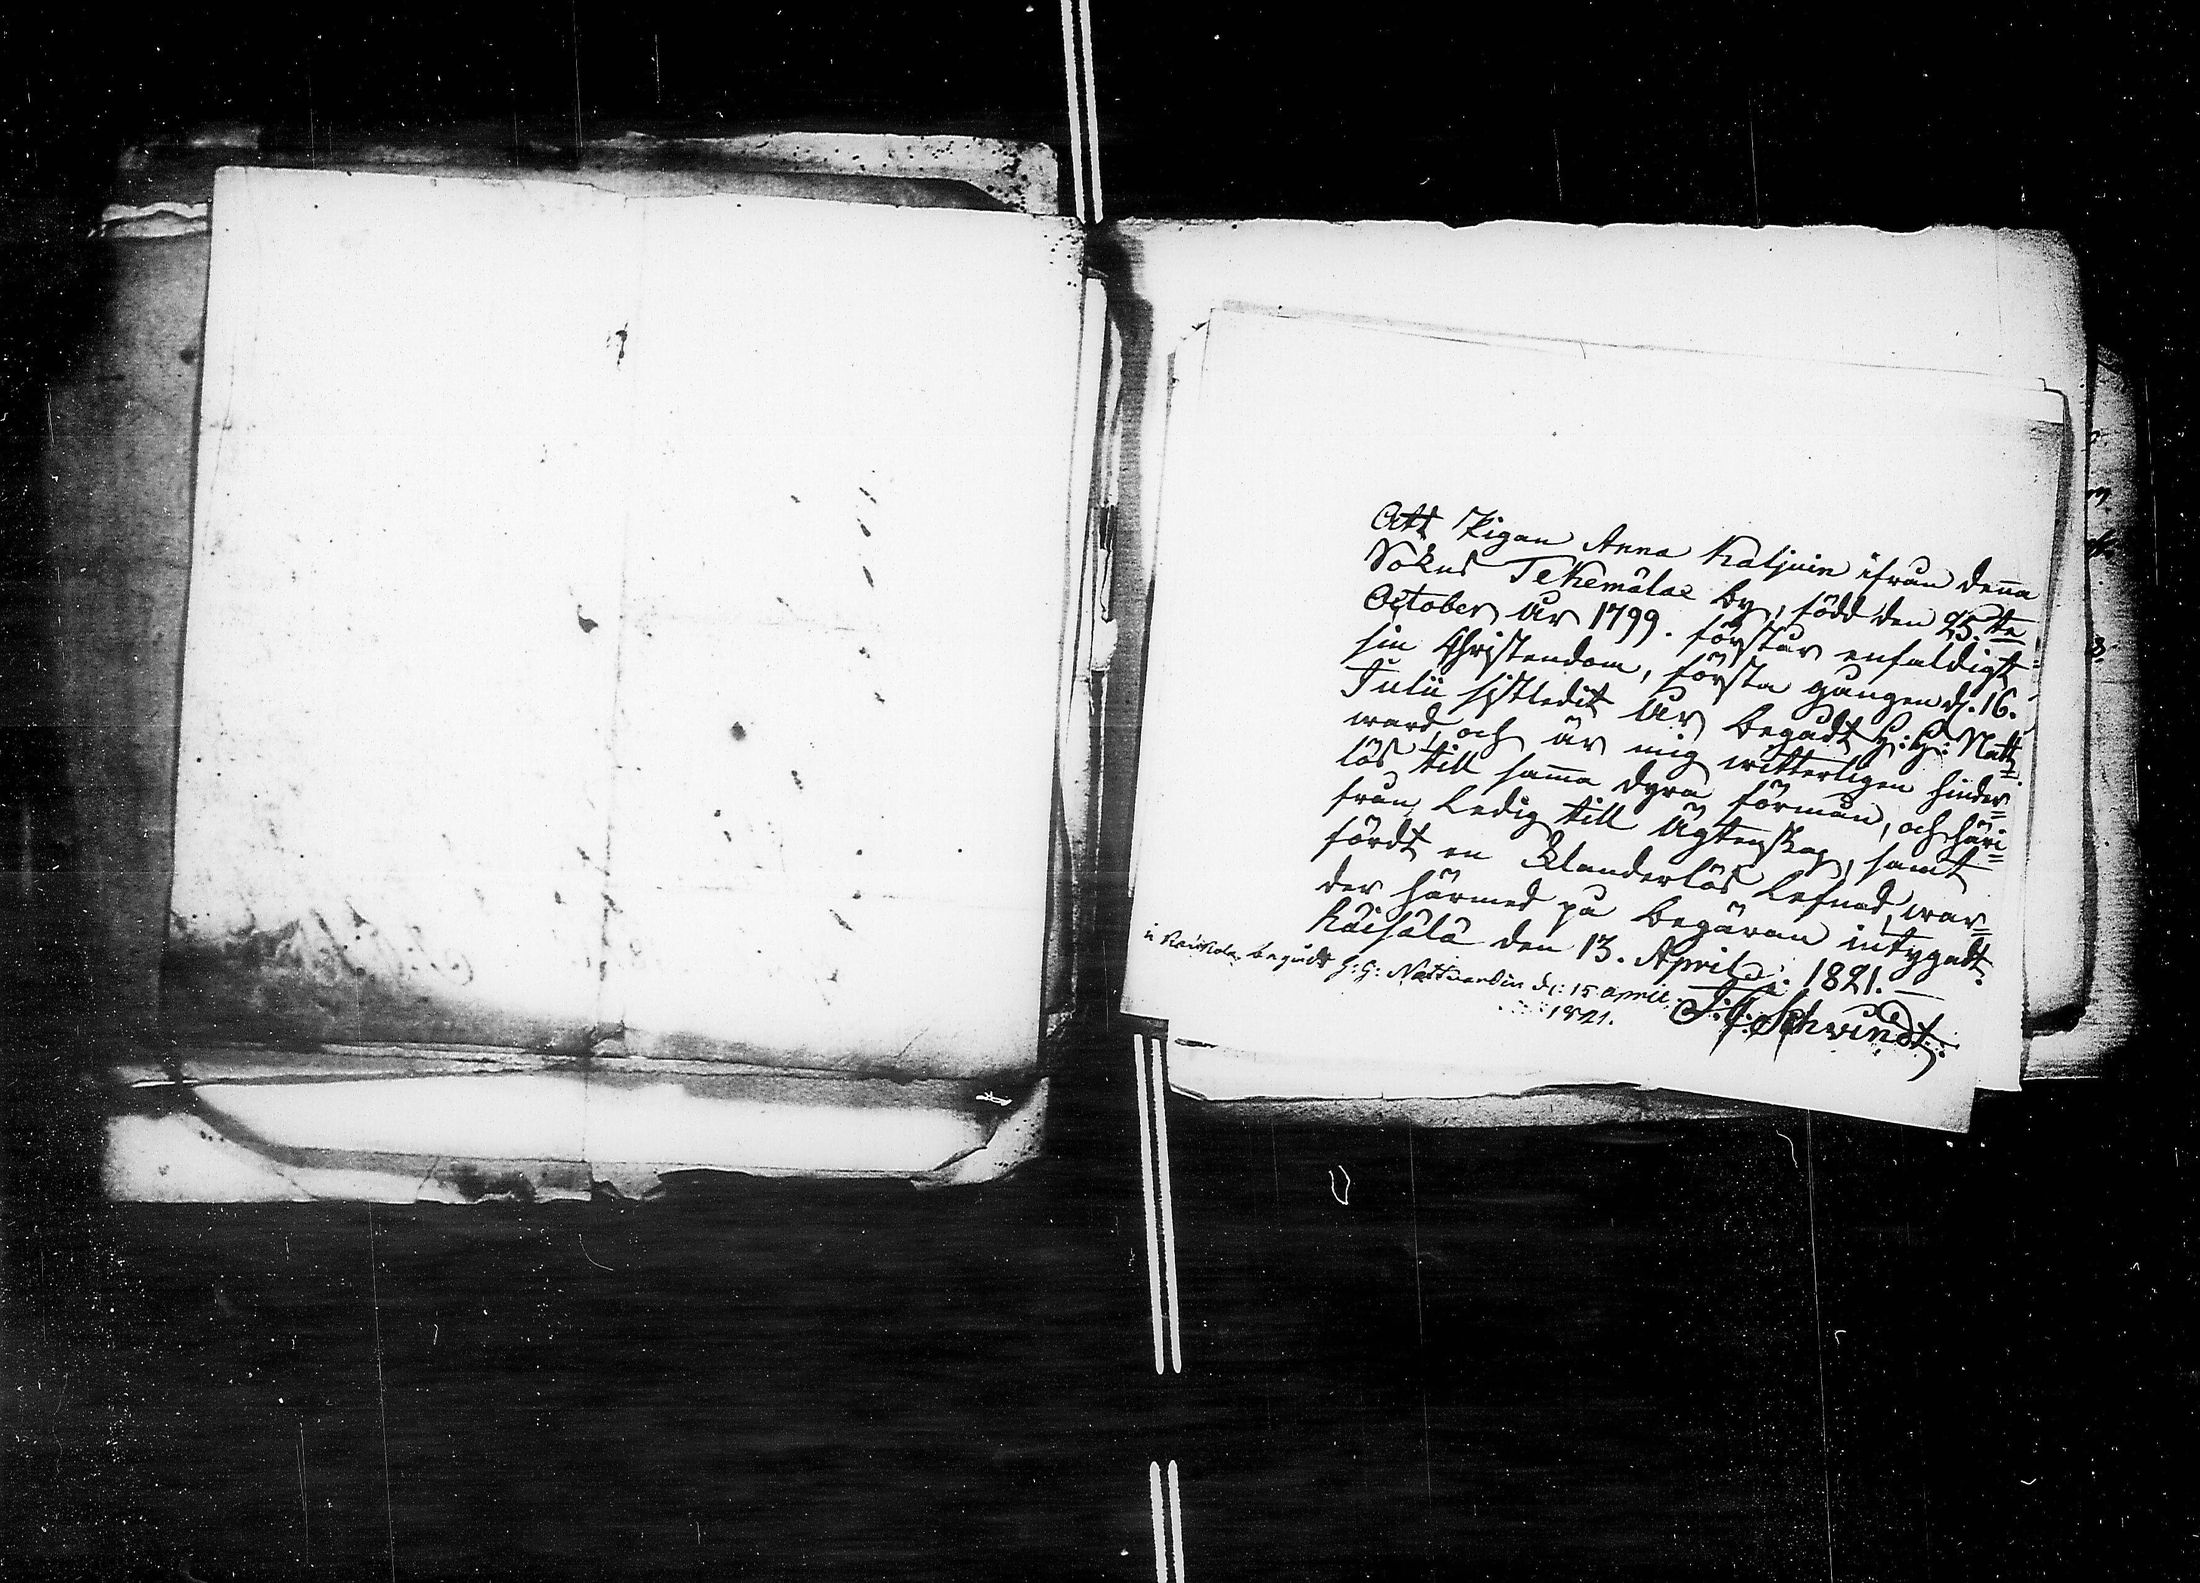 Att Pigan Anna Kaljuin ifrån denna
Sokns Tekemälae by, född den 25.te
October År 1799. förstår enfaldigt
sin Christendom, första gången d. 16.
Julii sistledit År begådt H:H: Natt=
ward, och är mig witterligen hinder=
lös till samma dyra förmån, och häri=
från Ledig till Ägtenskap, samt
fördt en Klanderlös Lefnad, war=
der härmed på begäran intygadt.
Räisälä den 13. April 1821.—
Schvindt.
begådt H:H: Nattvarden d: 15 April
1821.